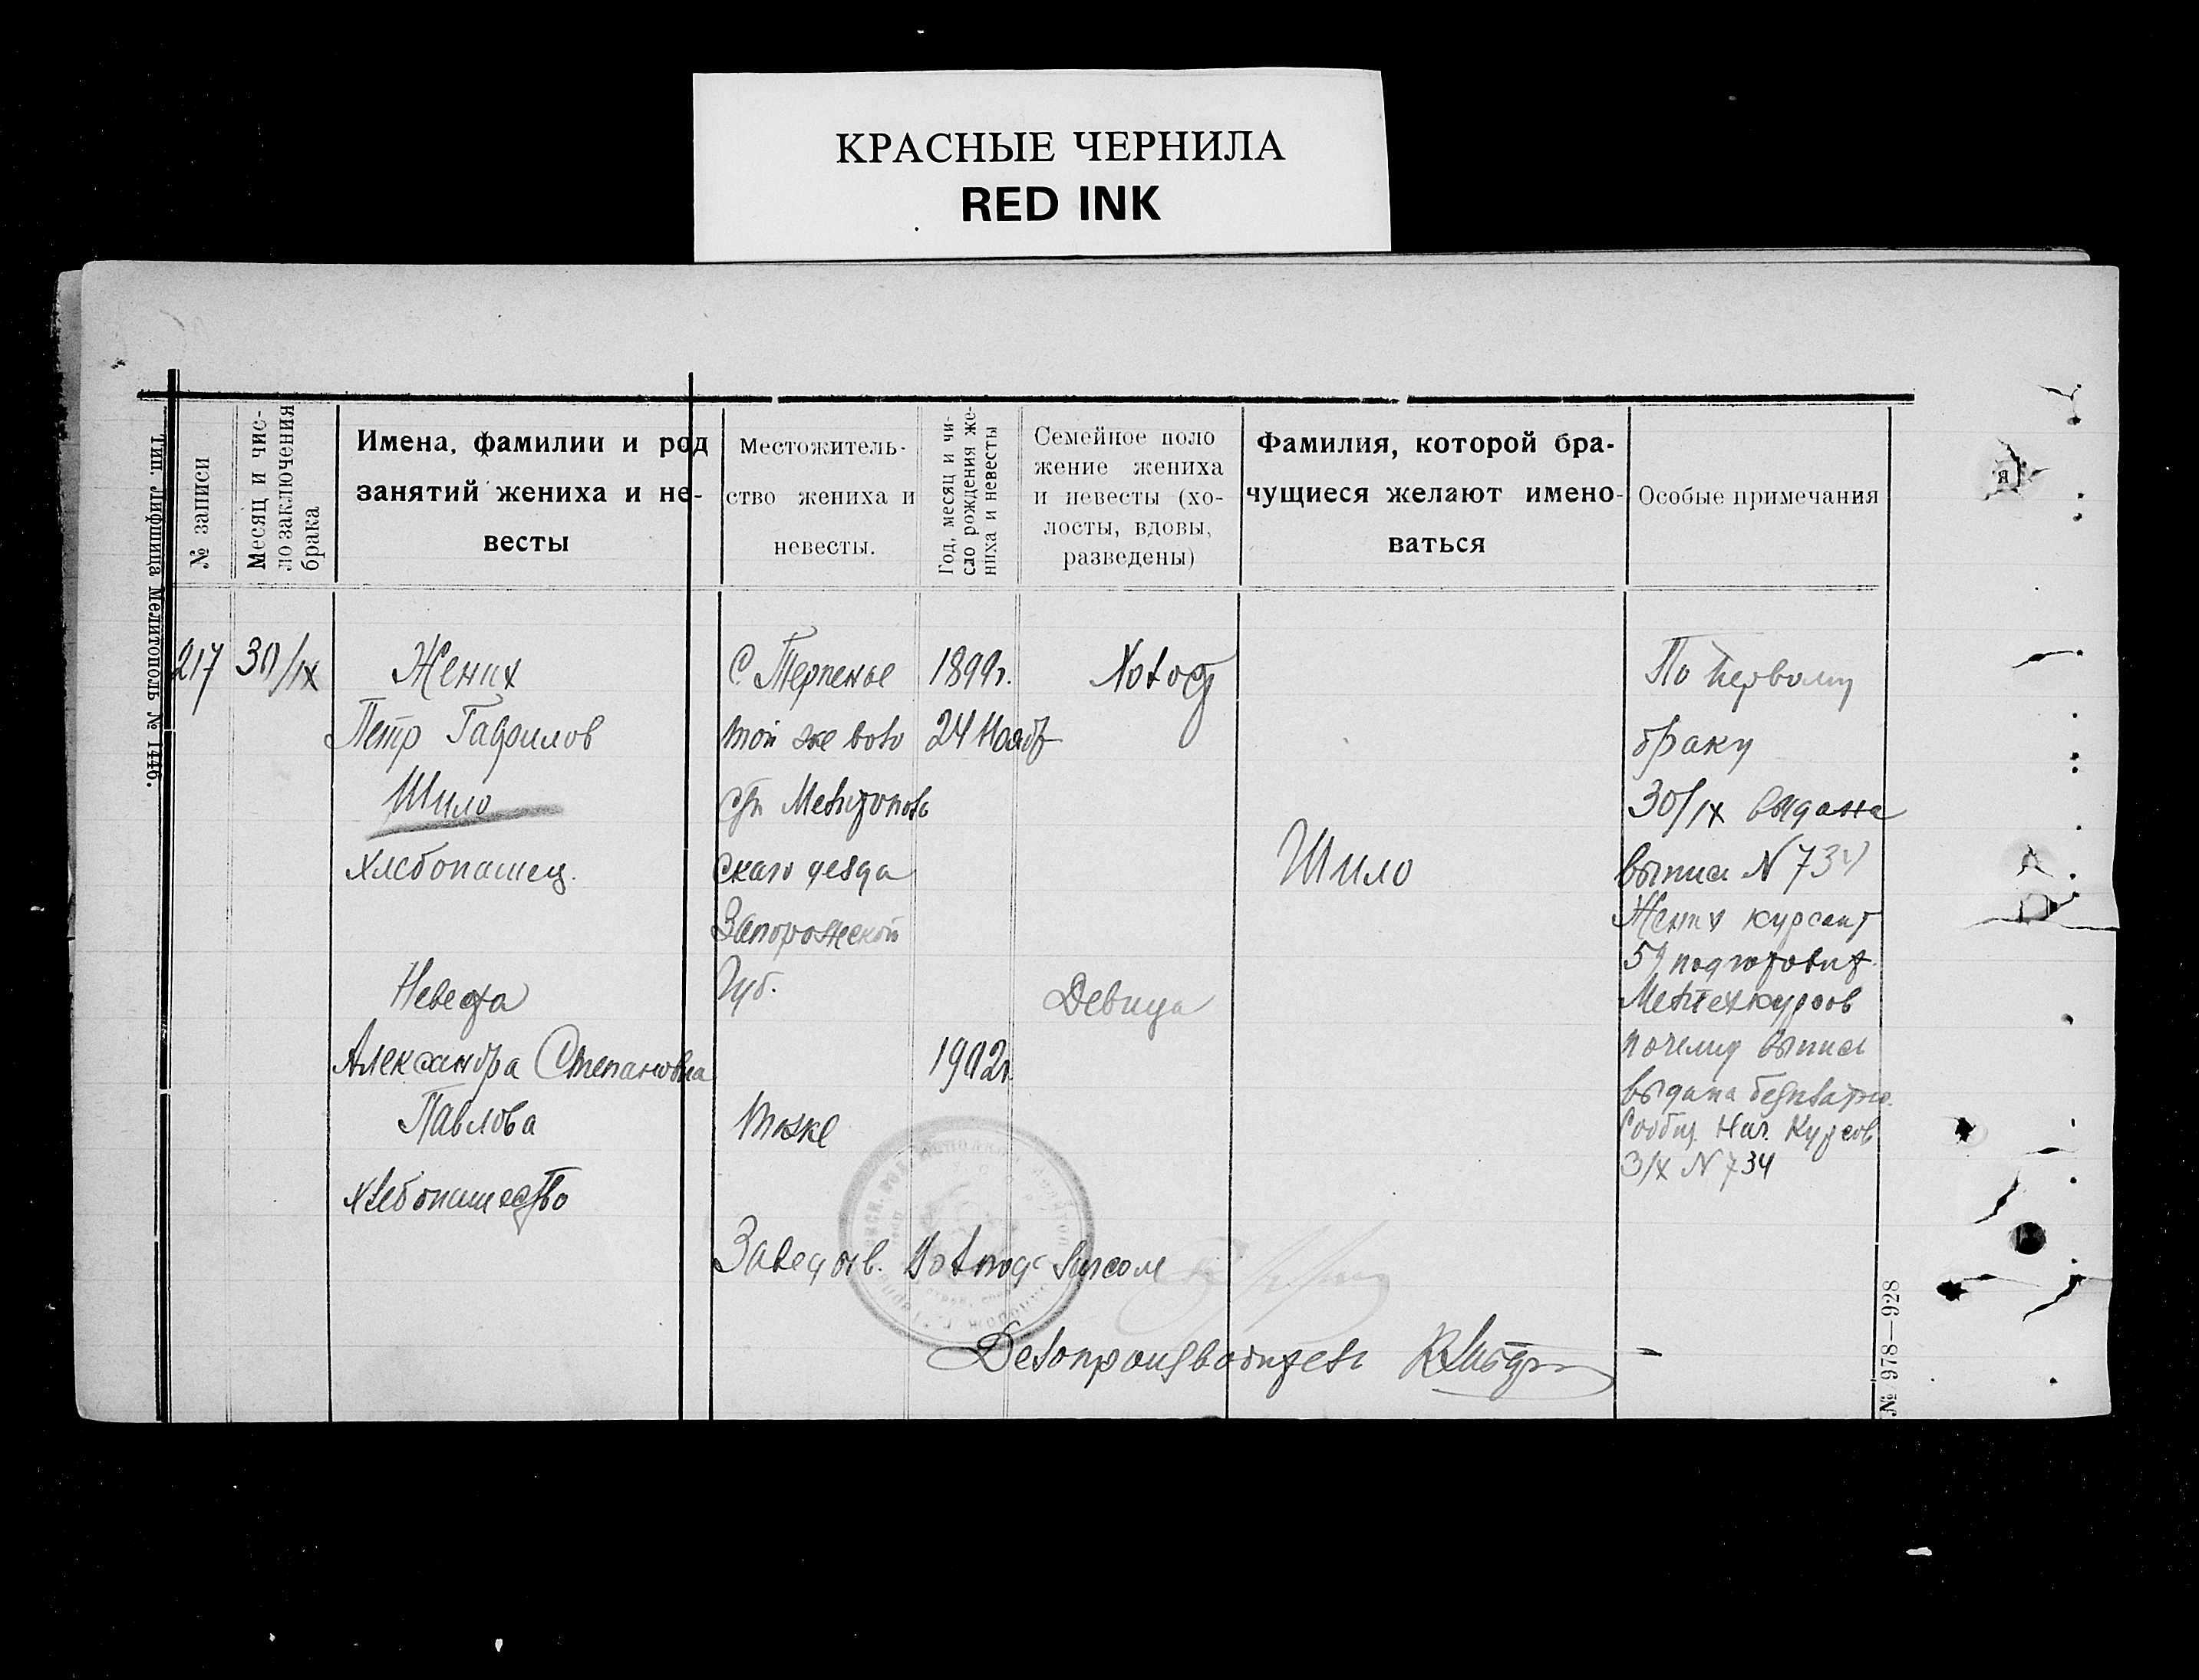 КРАСНЫЕ ЧЕРНИЛА
RED INK
Тип Лифшица Мелитополь № 1446.
№ записи
Месяц и чис-
ло заключения
брака
Имена, фамилии и род
занятий жениха и не-
весты
Местожитель-
ство жениха и
невесты.
Год, месяц и чи-
сло рождения же-
ниха и невесты
Семейное поло
жение жениха
и невесты (хо-
лосты, вдовы,
разведены)
Фамилия, которой бра-
чущиеся желают имено-
ваться
Особые примечания
217
30/IX
Жених
Петр Гаврилов
Шило
хлебопашец.
Невеста
Александра Степановна
Павлова
хлебопашество
С Терпенье
той же воло
сти Мелитополь
скаго уезда
Запорожской
Губ.
Тоже
1899г.
24 Нояб
1902г
Холост
Девица
Шило
По первому
браку
30/IX выдана
выпись N 734
Жених курсант
59 подготовит.
почему выпись
выдана бесплатно.
Сообщ. Нач. Курсов
3/X N 734
Заведотв.
Делопроизводитель
№ 978—928